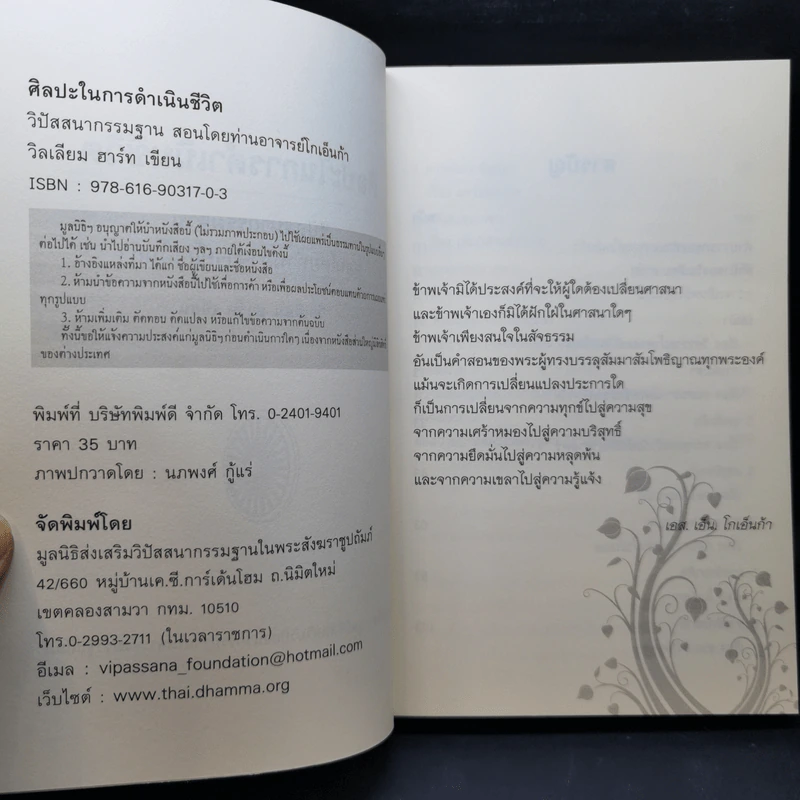 ศิลปะในการดำเนินชีวิต
วิปัสสนากรรมฐาน สอนโดยท่านอาจารย์โกเอ็นก้า
วิลเลียม ฮาร์ท เขียน
ISBN : 978-616-90317-0-3
มูลนิธิฯ อนุญาตให้นำหนังสือนี้ (ไม่รวมภาพประกอบ) ไปใช้เผยแพร่เป็นธรรมทาน
ต่อไปได้ เช่น นำไปอ่านบันทึกเสียง ฯลฯ ภายใต้เงื่อนไขดังนี้
1. อ้างอิงแหล่งที่มา ได้แก่ ชื่อผู้เขียนและชื่อหนังสือ
2. ห้ามนำข้อความจากหนังสือนี้ไปใช้เพื่อการค้า หรือเพื่อผลประโยชน์ตอบแทน
ทุกรูปแบบ
3. ห้ามเพิ่มเติม ตัดทอน ดัดแปลง หรือแก้ไขข้อความจากต้นฉบับ
ทั้งนี้ขอให้แจ้งความประสงค์แก่มูลนิธิฯ ก่อนดำเนินการใดๆ เนื่องจากหนังสือส่วนใหญ่
ของต่างประเทศ
พิมพ์ที่ บริษัทพิมพ์ดี จำกัด โทร. 0-2401-9401
ราคา 35 บาท
ภาพปกวาดโดย : นภพงศ์ กู้แร่
จัดพิมพ์โดย
มูลนิธิส่งเสริมวิปัสสนากรรมฐานในพระสังฆราชูปถัมภ์
42/660 หมู่บ้านเค.ซี.การ์เด้นโฮม ถ.นิมิตใหม่
เขตคลองสามวา กทม. 10510
โทร.0-2993-2711 (ในเวลาราชการ)
อีเมล : vipassana_foundation@hotmail.com
เว็บไซต์ : www.thai.dhamma.org
ข้าพเจ้ามิได้ประสงค์ที่จะให้ผู้ใดต้องเปลี่ยนศาสนา
และข้าพเจ้าเองก็มิได้ฝักใฝ่ในศาสนาใดๆ
ข้าพเจ้าเพียงสนใจในสัจธรรม
อันเป็นคำสอนของพระผู้ทรงบรรลุสัมมาสัมโพธิญาณทุกพระองค์
แม้นจะเกิดการเปลี่ยนแปลงประการใด
ก็เป็นการเปลี่ยนจากความทุกข์ไปสู่ความสุข
จากความเศร้าหมองไปสู่ความบริสุทธิ์
จากความยึดมั่นไปสู่ความหลุดพ้น
และจากความเขลาไปสู่ความรู้แจ้ง
เอส. เอ็น. โกเอ็นก้า